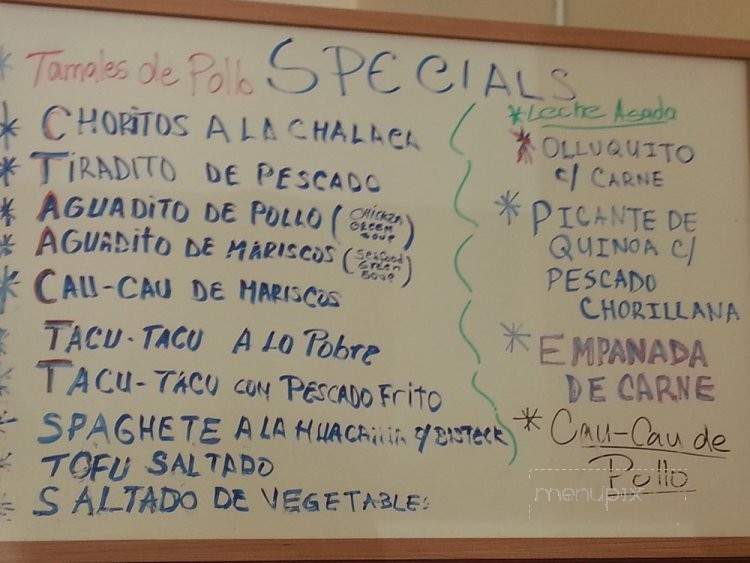 SPECIALS
* Tamales de Pollo
* CHORITOS A LA CHALACA
* TIRADITO DE PESCADO
* AGUADITO DE POLLO (CHICKEN GREEN SOUP)
* AGUADITO DE MARISCOS (Seafood Green Soup)
* CAU-CAU DE MARISCOS
TACU-TACU A LO Pobre
TACU-TACU CON PESCADO Frito
SPAGHETE A LA HUACAiiiiA c/ BISTECK
TOFU SALTADO
SALTADO DE VEGETABLES
* Leche Asada
* OLLUQUITO
c/ CARNE
* PICANTE DE
QUINOA c/
PESCADO
CHORILLANA
* EMPANADA
DE CARNE
* Cau-Cau de
Pollo
menupix